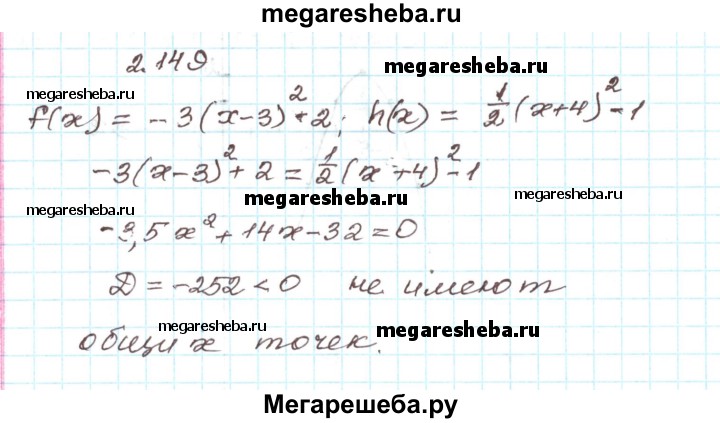 megaresheba.ru
2.149
megaresheba.ru
megaresheba.ru
f(x) = -3(x-3)²+2; h(x) = 1/2(x+4)²-1
-3(x-3)²+2 = 1/2(x+4)²-1
megaresheba.ru
megaresheba.ru
megaresheba.ru
-3,5x²+14x-32=0
D = -252 < 0 не имеют
megaresheba.ru
megaresheba.ru
общих точек.
Мегарешеба.ру